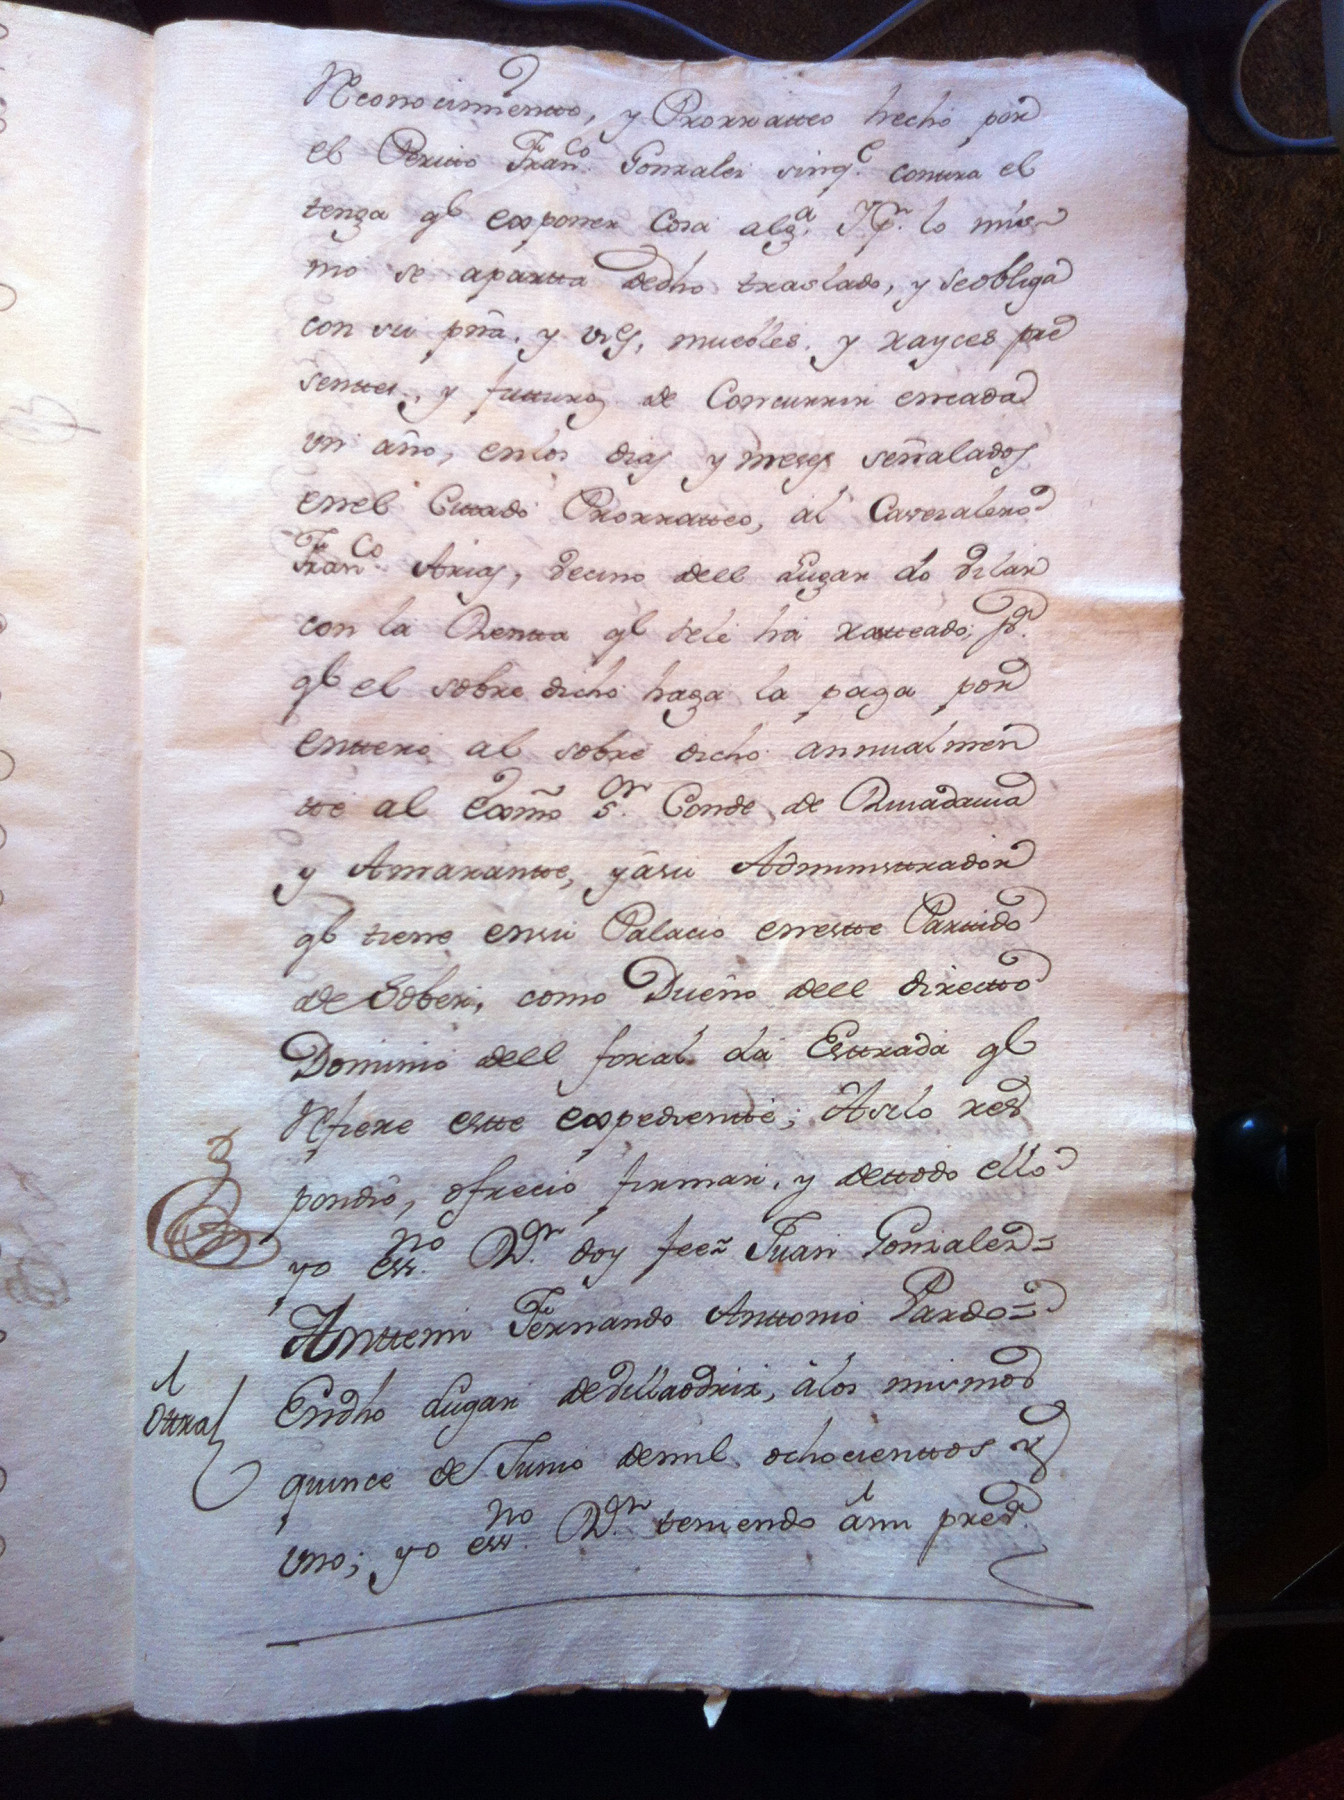 Rconocimientto, y Prorratteo hecho por
el Perito Franco. Gonzalez sinqe. contra el
tenga qe exponer Cosa alga. Y pr. lo mis-
mo se apartta dedho traslado, y seobliga
con su prna. y vs, muebles, y rayces pre
senttes, y futturos de Concurrir encada
un año, enlos dias y meses señalados
enel Cittado Prorratteo, al Cavezalero
Franco. Arias, vecino dell Lugar do Vilar
con la Rentta qe sele ha ratteado, pa.
qe el sobre dicho haga la paga por
enttero al sobre dicho annualmen
tte al Exmo. Sor. Conde de Rivadavia
y Amarantte, y âsu Administtrador
qe tiene ensu Palacio enestte Parttido
de Sober, como Dueño dell directto
Dominio dell foral da Esttrada qe
Rfiere estte expedientte; Asilo res
pondió, ofrecio firmar, y dettodo ello
yo essno. Ror. doy fee= Juan Gonzalez=
Anttemi Fernando Anttonio Pardo=
Ottra
Endho Lugar deVillaodrix, âlos mismos
quince de Junio demil ochocienttos y
uno; yo essno. Ror. teniendo âmi presa.